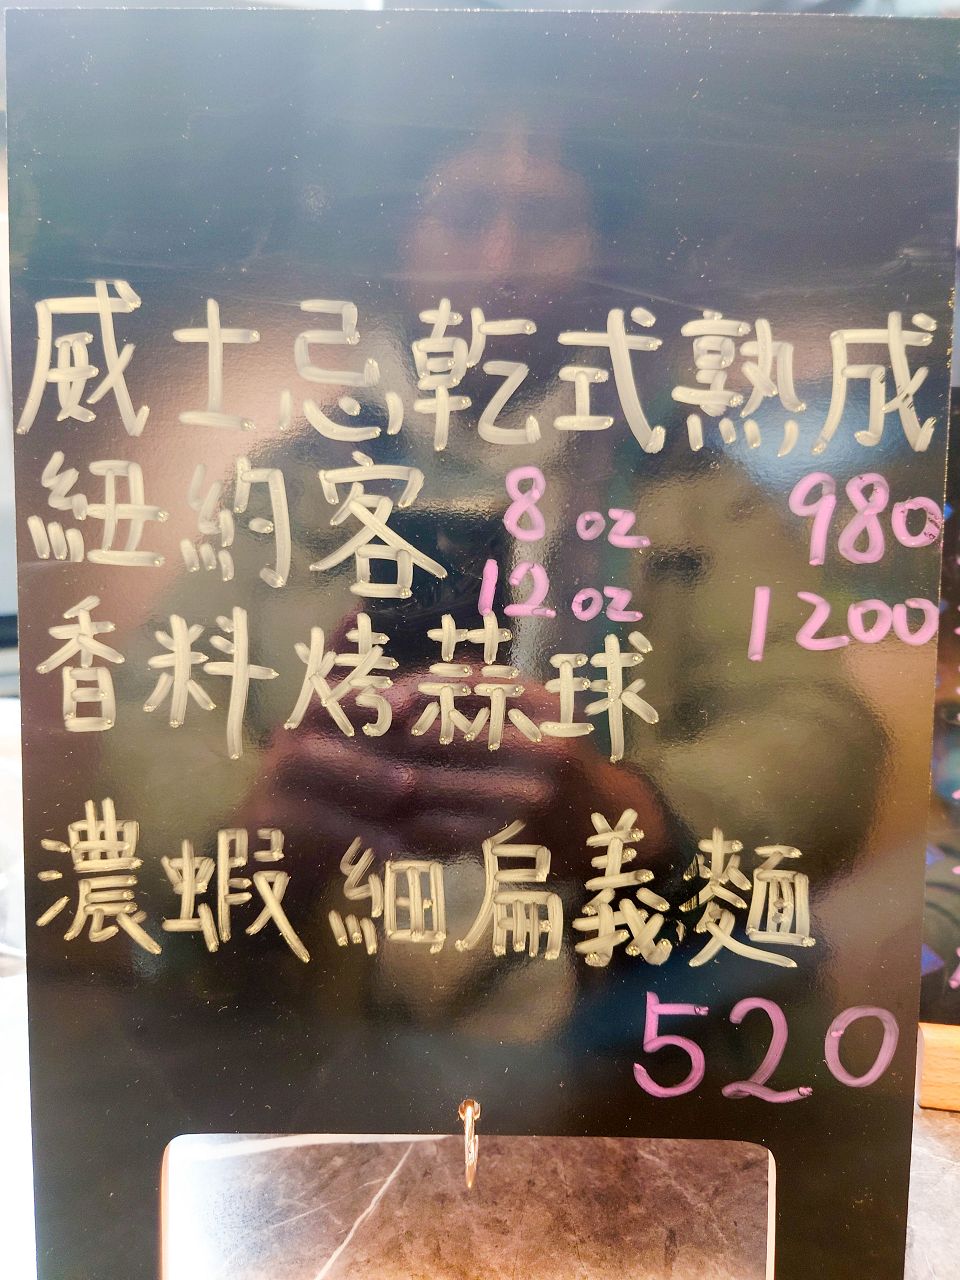 威士忌乾式熟成
紐約客 8 oz 980
12 oz 1200
香料烤蒜球
濃蝦細扁義麵
520